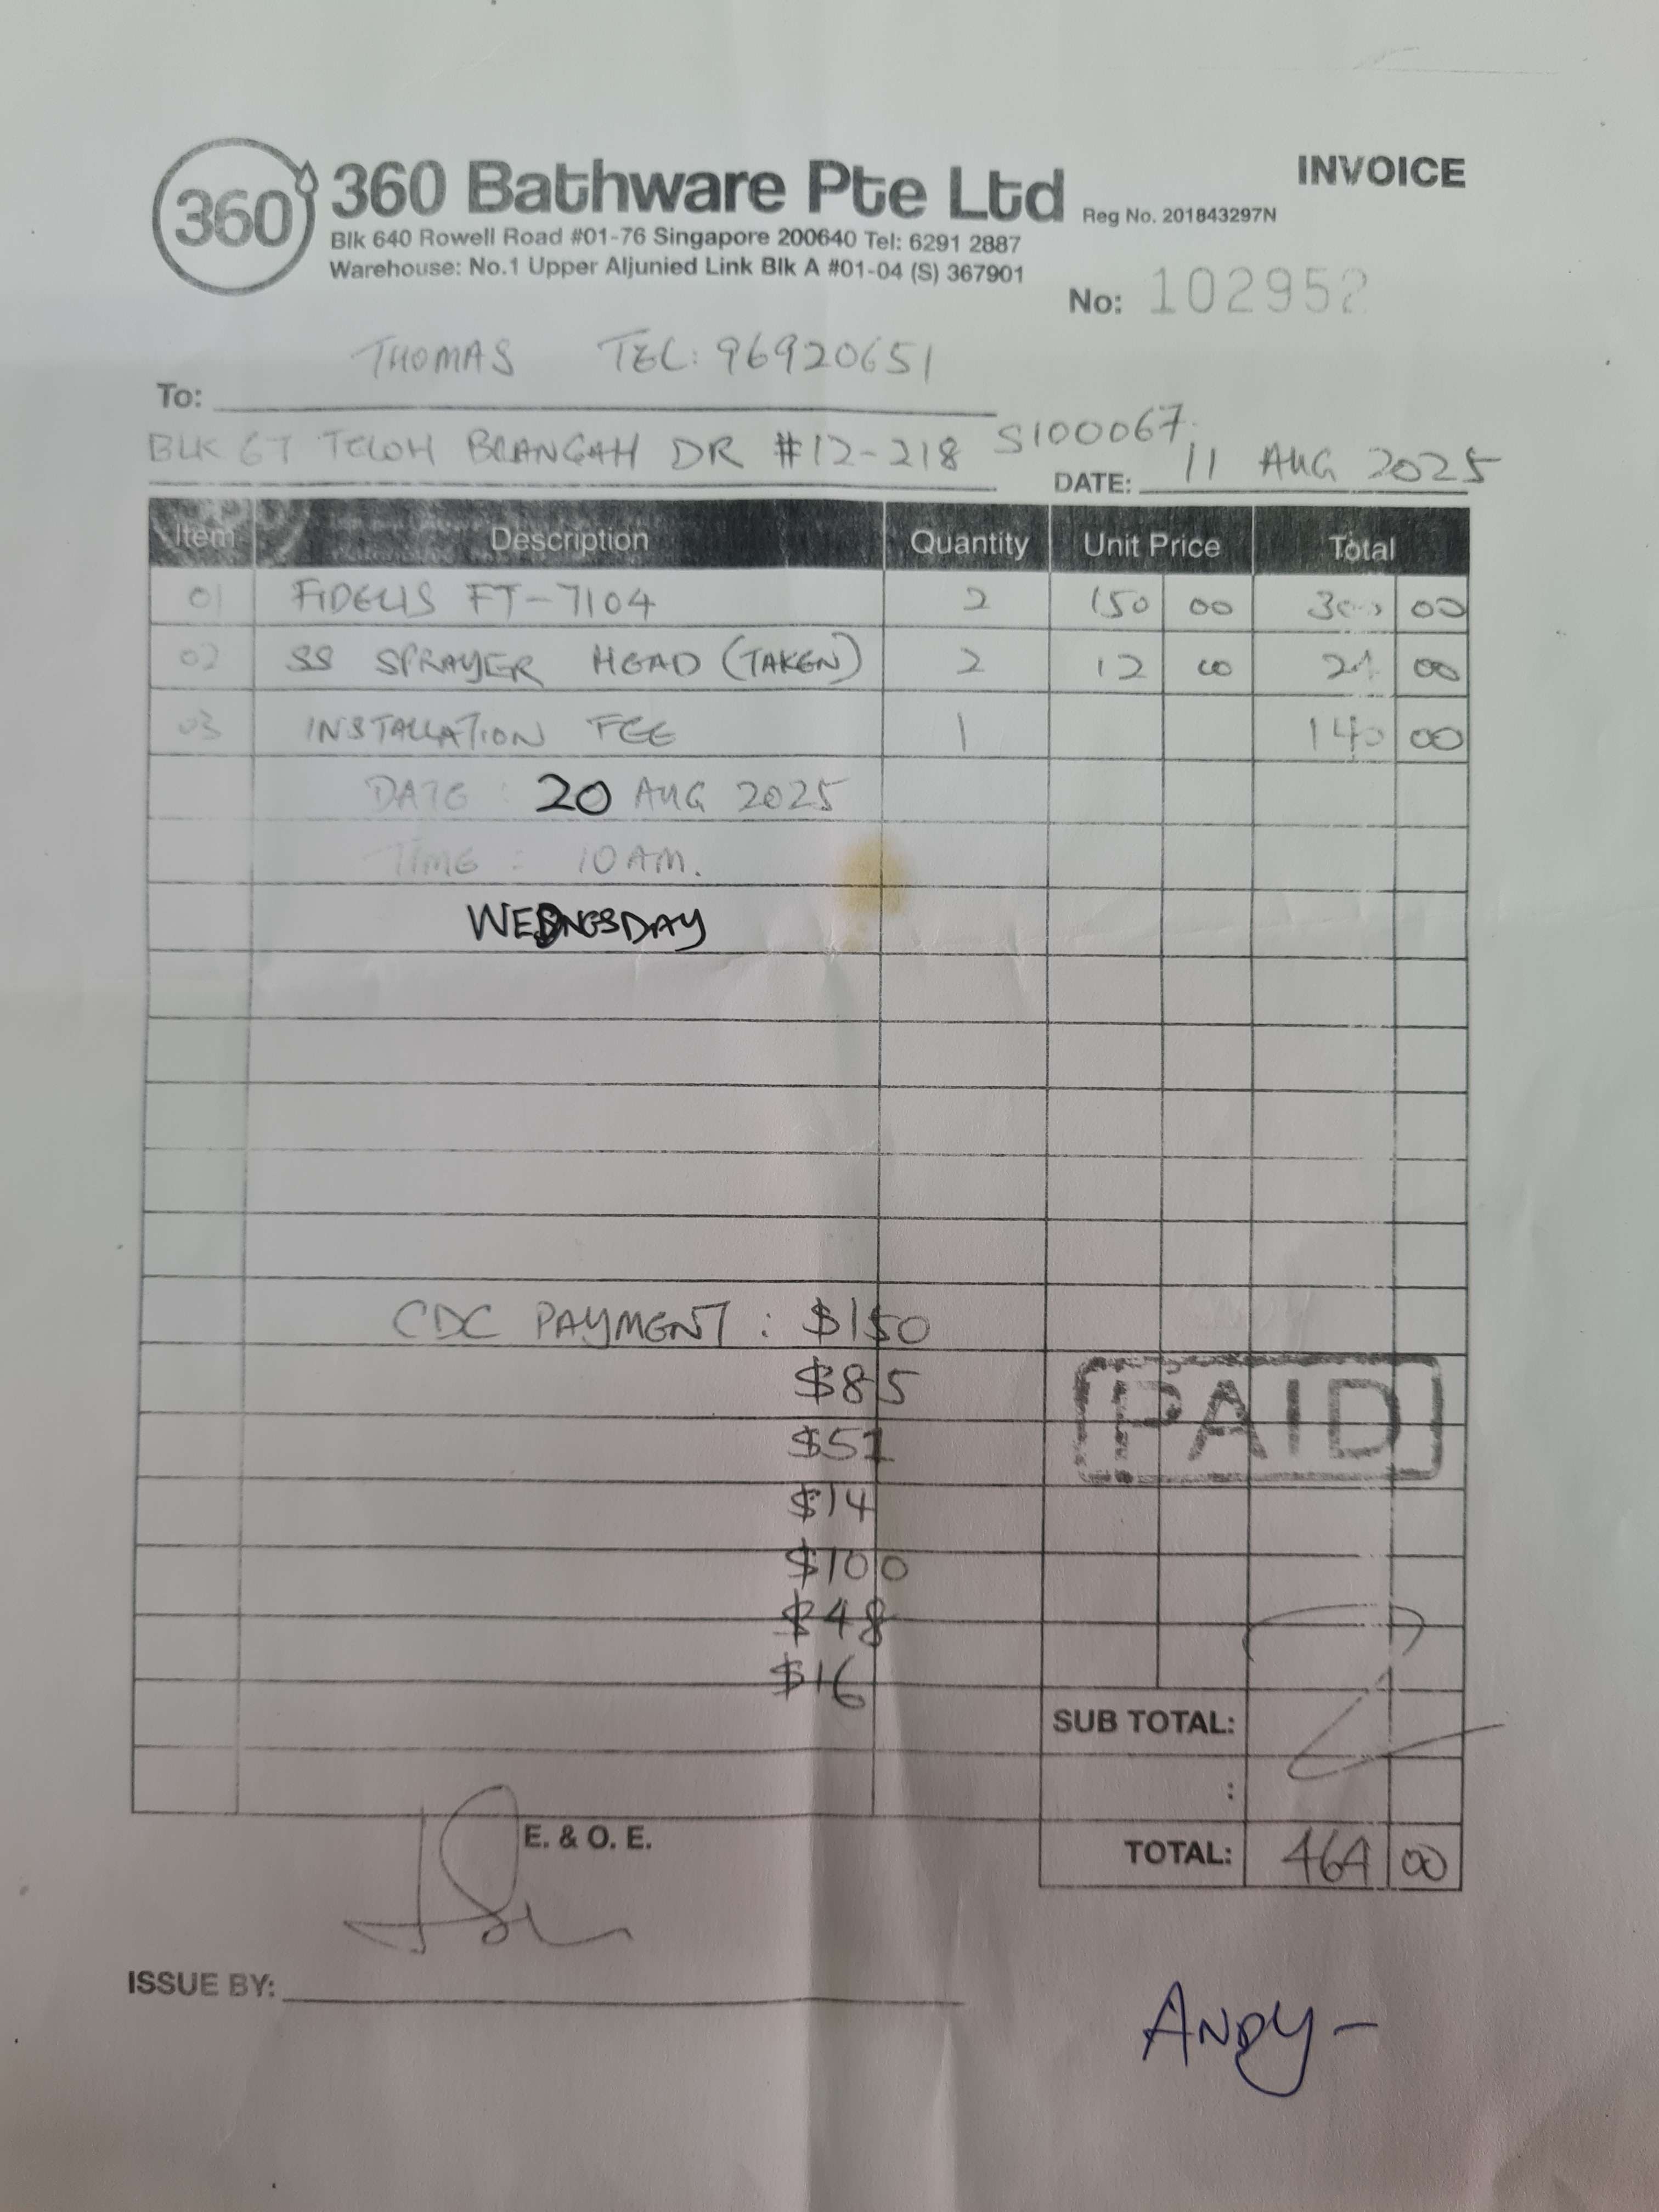 360
360 Bathware Pte Ltd Reg No. 201843297N
INVOICE
Blk 640 Rowell Road #01-76 Singapore 200640 Tel: 6291 2887
Warehouse: No.1 Upper Aljunied Link Blk A #01-04 (S) 367901
No: 102952
THOMAS TEL: 96920651
To:
BLK 67 TELOH BLANGAH DR #12-218 S100067.
DATE: 11 AUG 2025
Item Description Quantity Unit Price Total
01 FIDELIS FT-7104 2 150 00 300 00
02 SS SPRAYER HEAD (TAKEN) 2 12 00 24 00
03 INSTALLATION FEE 1 140 00
DATE : 20 AUG 2025
TIME : 10AM.
WEDNESDAY
CDC PAYMENT : $150
$85
$51
$14
$100
$48
$16
PAID
SUB TOTAL:
:
E. & O. E.
TOTAL: 464 00
ISSUE BY:
ANDY-